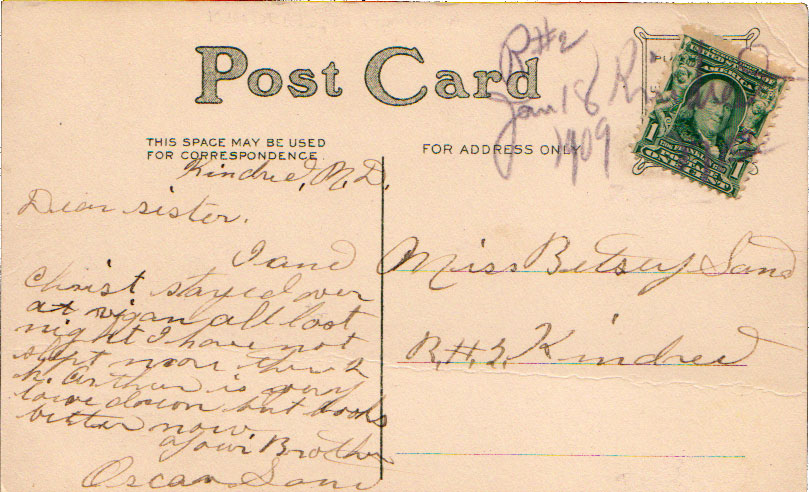 Post Card
R#2
Jan 18
1909
THIS SPACE MAY BE USED
FOR CORRESPONDENCE
FOR ADDRESS ONLY
1
1
Kindred, N.D.
Dear sister.
I and
Christ stayed over
at vigan all last
night I have not
slept more then 2
h. Arthur is very
lowe down but looks
better now
Your Brother
Oscar Sand
Miss Betsey Sand
Kindred